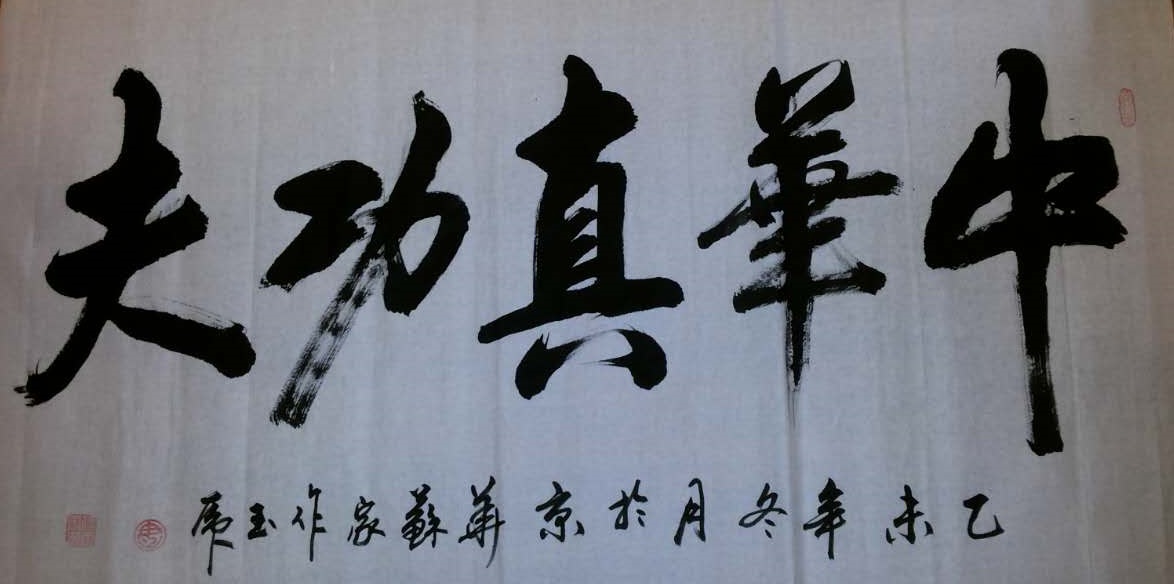 中華真功夫
乙未年冬月於京華蘇家作玉虎